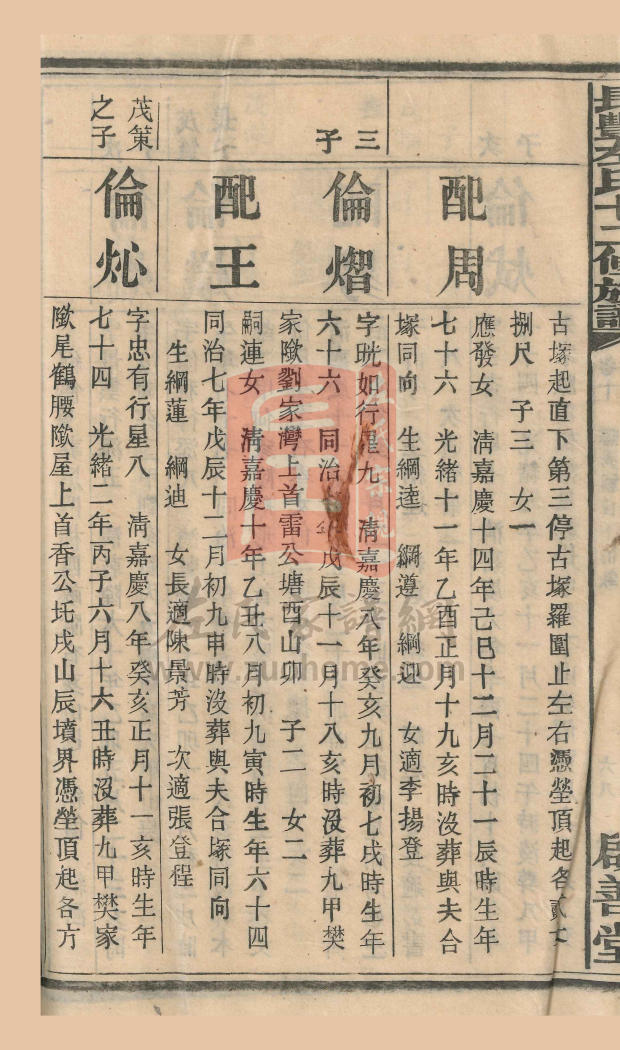 古塚起直下第三停古塚羅圍止左右憑塋頂起各貳丈
捌尺 子三 女一
配周
應發女 清嘉慶十四年己巳十二月二十一辰時生年
七十六 光緒十一年乙酉正月十九亥時沒葬與夫合
塚同向 生綱逵 綱遵 綱迎 女適李揚登
三子
倫熠
字晄如行星九 清嘉慶八年癸亥九月初七戌時生年
六十六 同治 年戊辰十一月十八亥時沒葬九甲樊
家隞劉家灣上首雷公塘酉山卯 子二 女二
配王
嗣連女 清嘉慶十年乙丑八月初九寅時生年六十四
同治七年戊辰十二月初九申時沒葬與夫合塚同向
生綱蓮 綱迪 女長適陳景芳 次適張登徎
茂策之子
倫炂
字忠有行星八 清嘉慶八年癸亥正月十一亥時生年
七十四 光緒二年丙子六月十六丑時沒葬九甲樊家
隞尾鶴腰隞屋上首香公圫戌山辰墳界憑塋頂起各方
啟善堂
左氏家譜網
www.zunhome.com